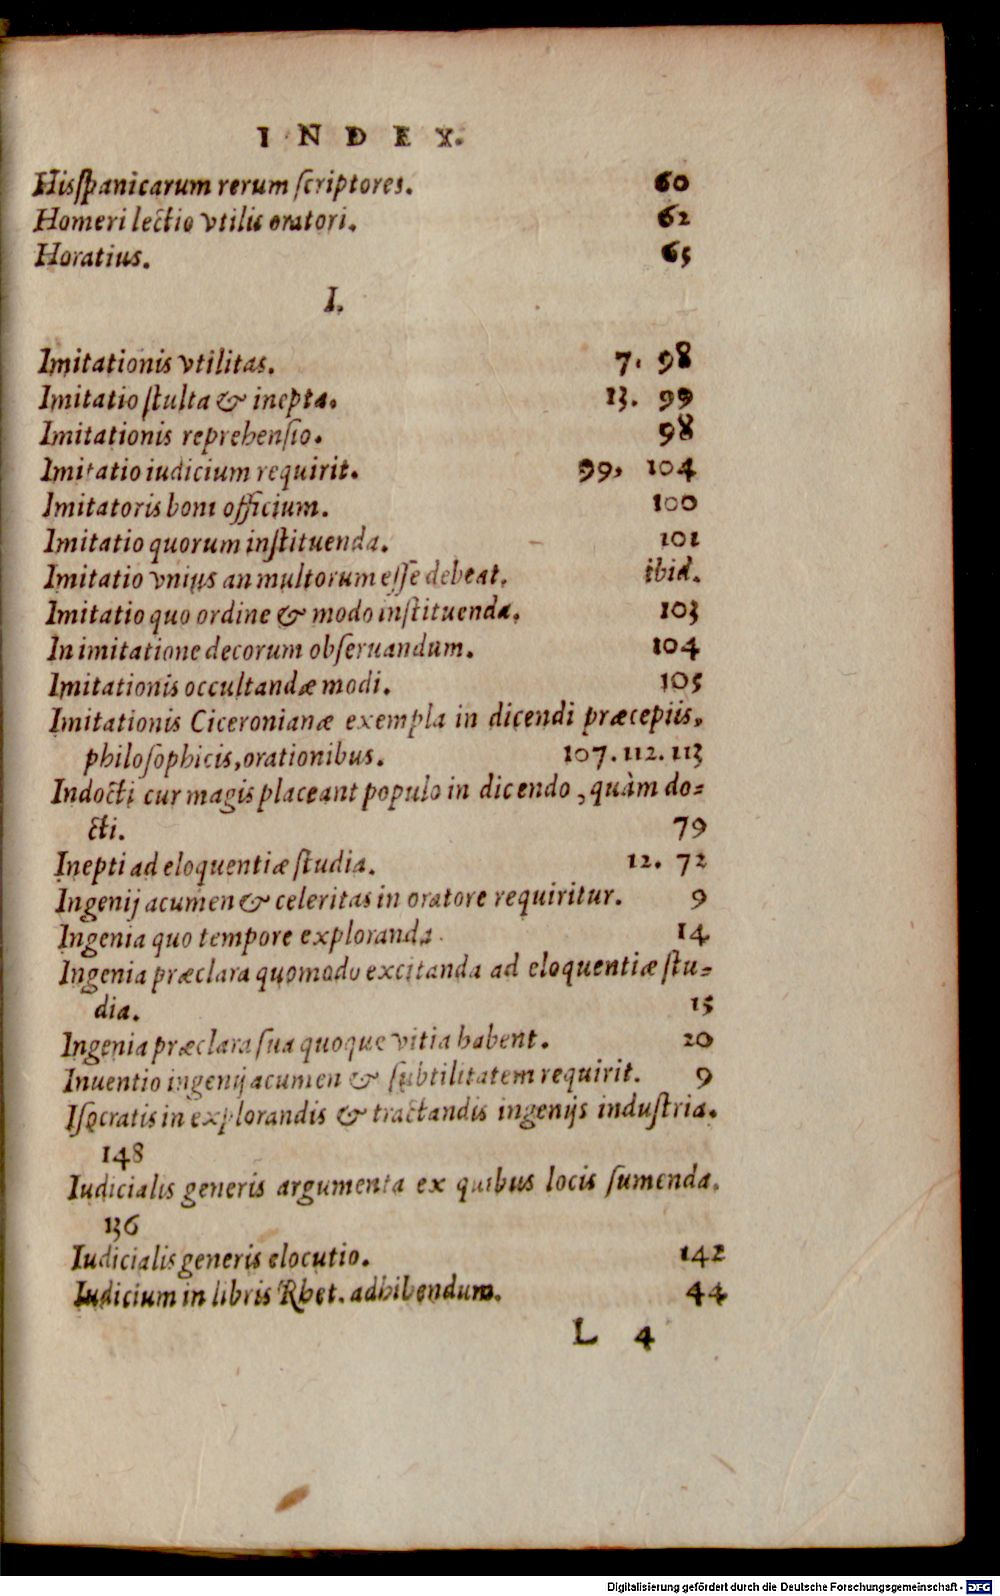 INDEX.
Hisſpanicarum rerum ſcriptores. 60
Homeri lectio vtilis oratori. 62
Horatius. 65
I.
Imitationis vtilitas. 7. 98
Imitatio ſtulta & inepta. 13. 99
Imitationis reprehenſio. 98
Imitatio iudicium requirit. 99, 104
Imitatoris boni officium. 100
Imitatio quorum inſtituenda. 101
Imitatio vnius an multorum eſſe debeat. ibid.
Imitatio quo ordine & modo inſtituenda. 103
In imitatione decorum obſeruandum. 104
Imitationis occultandæ modi. 105
Imitationis Ciceronianæ exempla in dicendi præcepiis,
philoſophicis, orationibus. 107. 112. 113
Indocti cur magis placeant populo in dicendo, quàm do-
cti. 79
Inepti ad eloquentiæ ſtudia. 12. 72
Ingenij acumen & celeritas in oratore requiritur. 9
Ingenia quo tempore exploranda. 14
Ingenia præclara quomodo excitanda ad eloquentiæ ſtu-
dia. 15
Ingenia præclara ſua quoque vitia habent. 20
Inuentio ingenij acumen & ſubtilitatem requirit. 9
Iſocratis in explorandis & tractandis ingenijs induſtria.
148
Iudicialis generis argumenta ex quibus locis ſumenda.
136
Iudicialis generis elocutio. 142
Iudicium in libris Rhet. adhibendum. 44
L 4
Digitalisierung gefördert durch die Deutsche Forschungsgemeinschaft - DFG